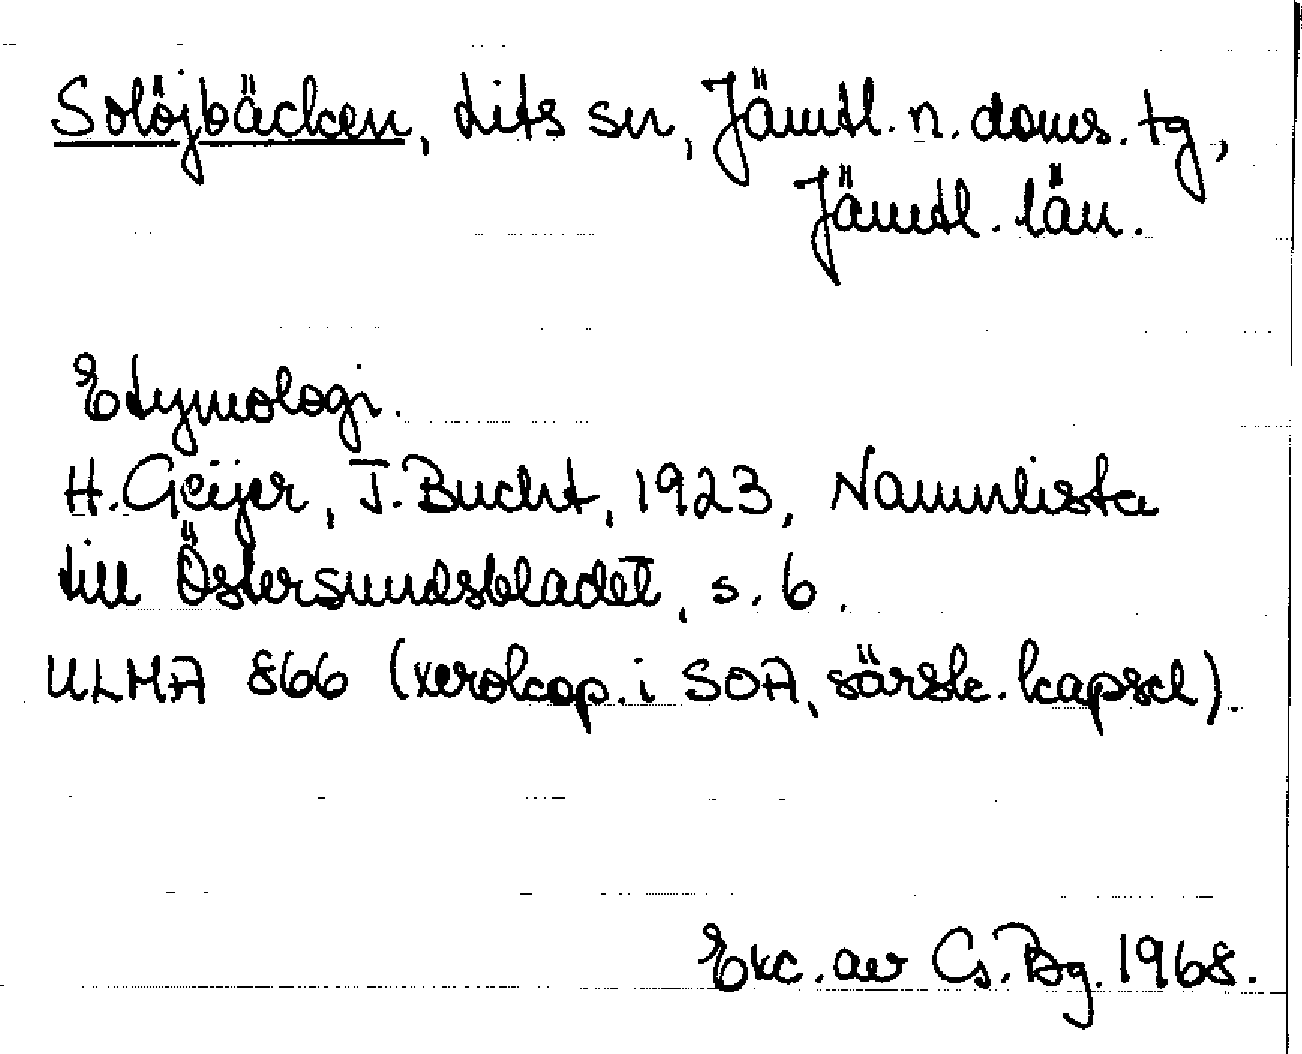 Solöjbäcken, Lits sn, Jämtl. n. doms. tg,
Jämtl. län.
Etymologi.
H. Geijer, J. Bucht, 1923, Namnlista
till Östersundsbladet, s. 6.
ULMA 866 (xerokop. i SOA, särsk. kapsel).
Exc. av Cs. Bg. 1968.